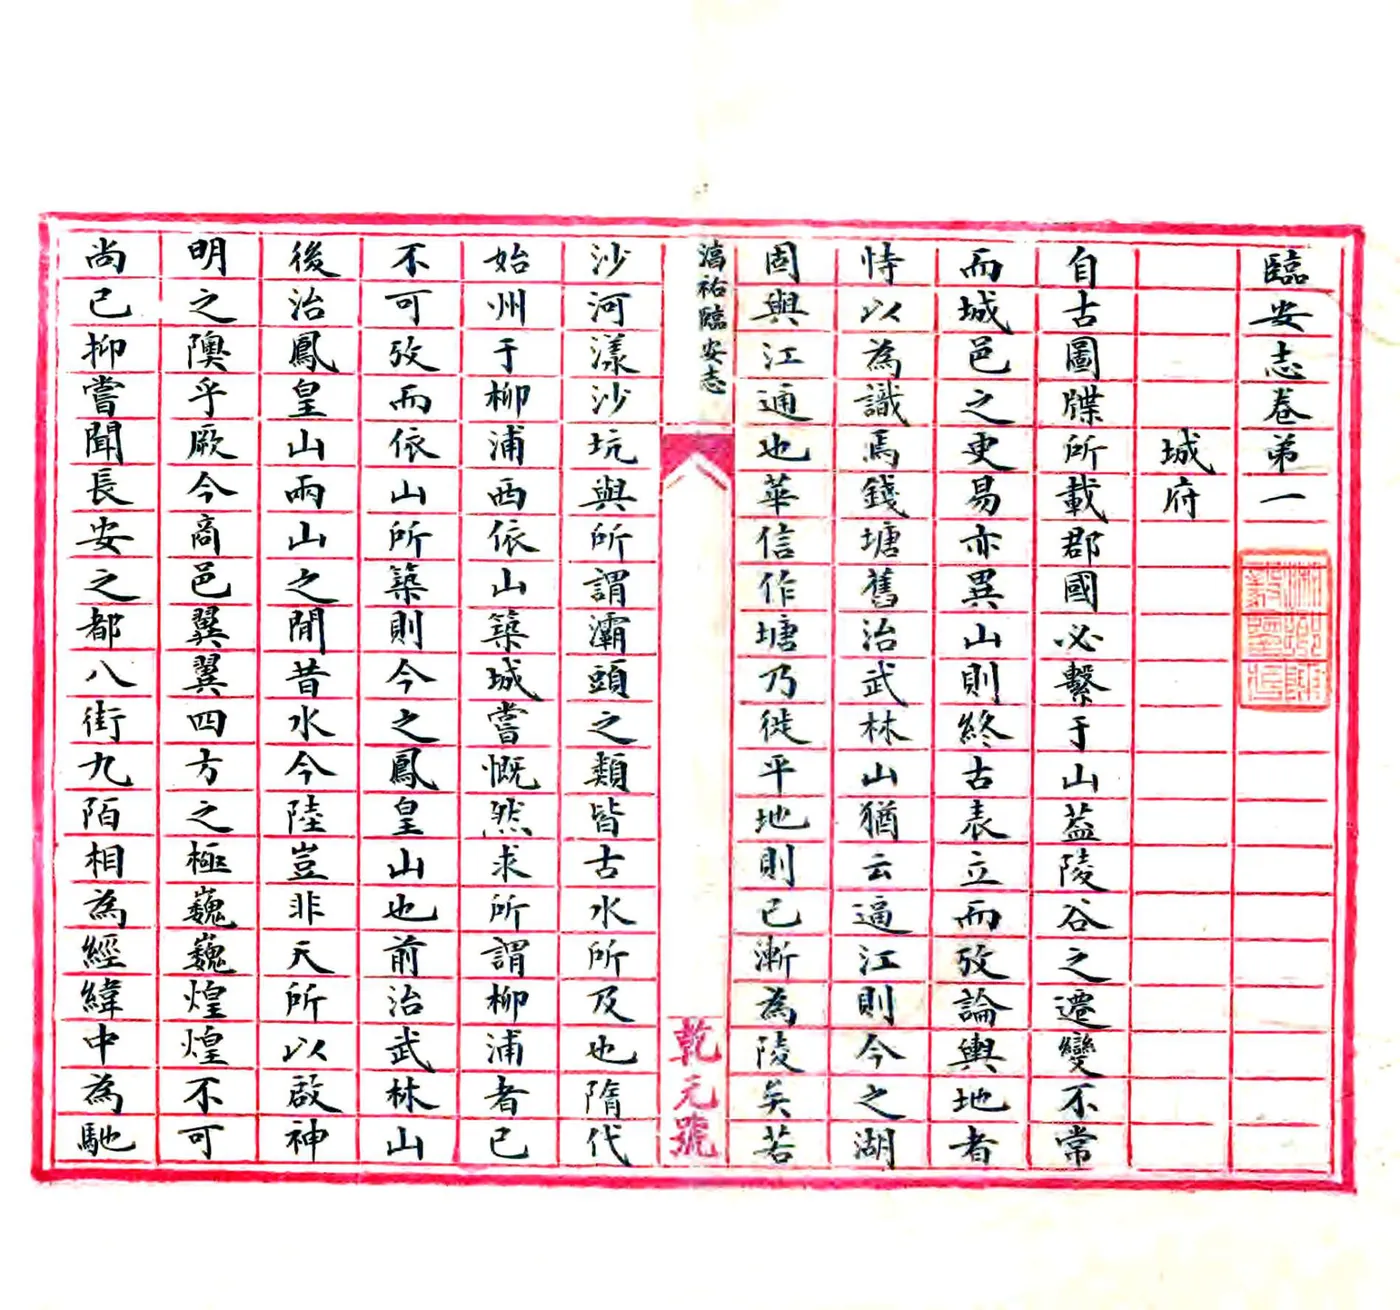 臨安志卷苐一
城府
自古圖牒所載郡國必繫于山葢陵谷之遷變不常
而城邑之更易亦異山則終古表立而攷論輿地者
恃以為識焉錢塘舊治武林山猶云逼江則今之湖
固與江通也華信作塘乃徙平地則已漸為陵矣若
淳祐臨安志
乾元號
沙河漾沙坑與所謂灞頭之類皆古水所及也隋代
始州于柳浦西依山築城嘗慨然求所謂柳浦者已
不可攷而依山所築則今之鳳皇山也前治武林山
後治鳳皇山兩山之間昔水今陸豈非天所以啟神
明之隩乎厥今商邑翼翼四方之極巍巍煌煌不可
尚已抑嘗聞長安之都八街九陌相為經緯中為馳